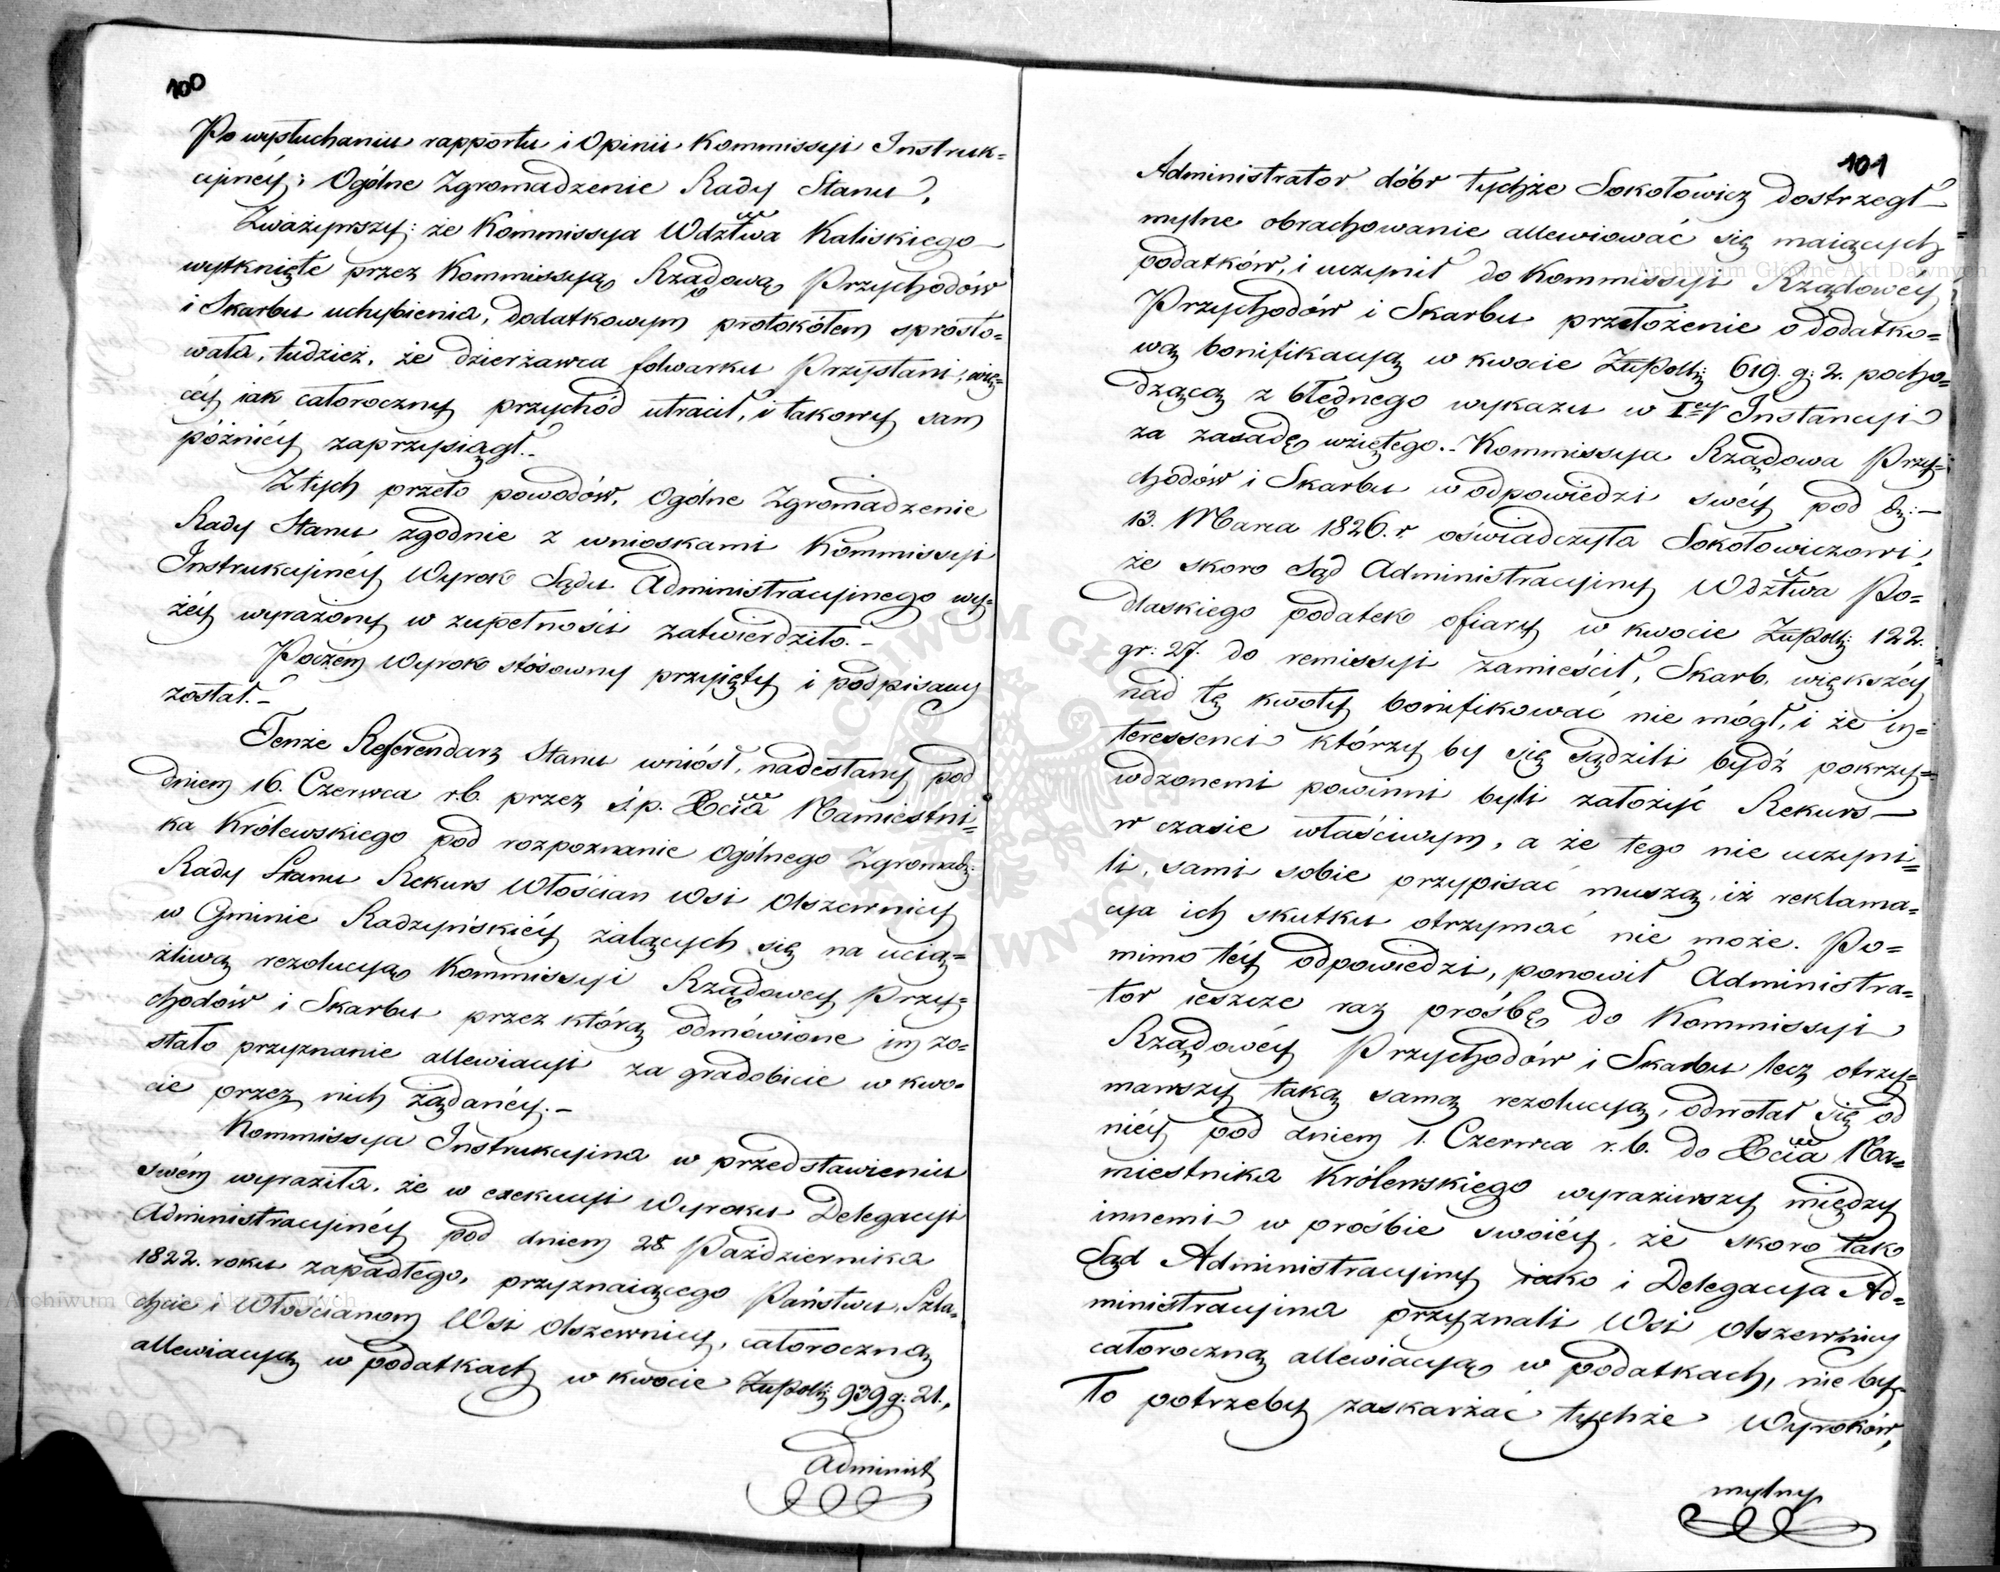 100
Po wysłuchaniu rapportu i Opinii Kommissyi Instruk=
cyinéy; Ogólne Zgromadzenie Rady Stanu,
Zważywszy: że Kommissya Wdztwa Kaliskiego
wytknięte przez Kommissyą Rządową Przychodów
i Skarbu uchybienia, dodatkowym protokółem sprosto=
wała, tudzież, że dzierżawca folwarku Przystani, wię=
céy iak całoroczny przychód utracił, i takowy sam
późniéy zaprzysiągł.-
Z tych przeto powodów, Ogólne Zgromadzenie
Rady Stanu zgodnie z wnioskami Kommissyi
Instrukcyinéy Wyrok Sądu Administracyinego wy=
żéy wyrażony w zupełności zatwierdziło.-
Poczém Wyrok stósowny przyięty i podpisany
został.-
Tenże Referendarz Stanu wniósł, nadesłany pod
dniem 16. Czerwca r.b. przez ś.p. Xcia Namiestni=
ka Królewskiego pod rozpoznanie Ogólnego Zgromadz:
Rady Stanu Rekurs Włościan Wsi Olszewnicy
w Gminie Radzyńskiéy żalących się na ucią=
żliwą rezolucyą Kommissyi Rządowey Przy=
chodów i Skarbu przez którą odmówione im zo=
stało przyznanie allewiacyi za gradobicie w kwo=
cie przez nich żądanéy.-
Kommissya Instrukcyina w przedstawieniu
swém wyraziła, że w exekucyi Wyroku Delegacyi
Administracyinéy pod dniem 28 Października
1822. roku zapadłego, przyznaiącego Państwu, Szla=
chcie i Włościanom Wsi Olszewnicy, całoroczną
allewiacyą w podatkach w kwocie Złpolk: 939 g: 21.,
Administ
101
Administrator dóbr tychże Sokołowicz dostrzegł
mylne obrachowanie allewiować się maiących
podatków, i uczynił do Kommissyi Rządowéy
Przychodów i Skarbu przełożenie o dodatko=
wą bonifikacyą w kwocie Złpolk: 619. g: 2. pocho=
dzącą z błędnego wykazu w Iéy Instancyi
za zasadę wziętego.- Kommissya Rządowa Przy=
chodów i Skarbu w odpowiedzi swéy pod dn:
13. Marca 1826. r. oświadczyła Sokołowiczowi,
że skoro Sąd Administracyiny Wdztwa Po=
dlaskiego podatek ofiary w kwocie Złpolk: 122.
gr: 27. do remissyi zamieścił, Skarb, większéy
nad tę kwoty bonifikować nie mógł, i że in=
teressenci którzy by się sądzili bydź pokrzy=
wdzonemi powinni byli założyć Rekurs
w czasie właściwym, a że tego nie uczyni=
li, sami sobie przypisać muszą, iż reklama=
cya ich skutku otrzymać nie może. Po=
mimo téy odpowiedzi, ponowił Administra=
tor ieszcze raz prośbę do Kommissyi
Rządowéy Przychodów i Skarbu lecz otrzy=
mawszy taką samą rezolucyą, odwołał się od
niéy pod dniem 1. Czerwca r.b. do Xcia Na=
miestnika Królewskiego wyraziwszy między
innemi w prośbie swoiéy, że skoro tak
Sąd Administracyiny iako i Delegacya Ad=
ministracyina przyznali Wsi Olszewnicy
całoroczną allewiacyą w podatkach, nie by=
ło potrzeby zaskarżać tychże Wyroków,
mylny
Archiwum Główne Akt Dawnych
Archiwum Główne Akt Dawnych